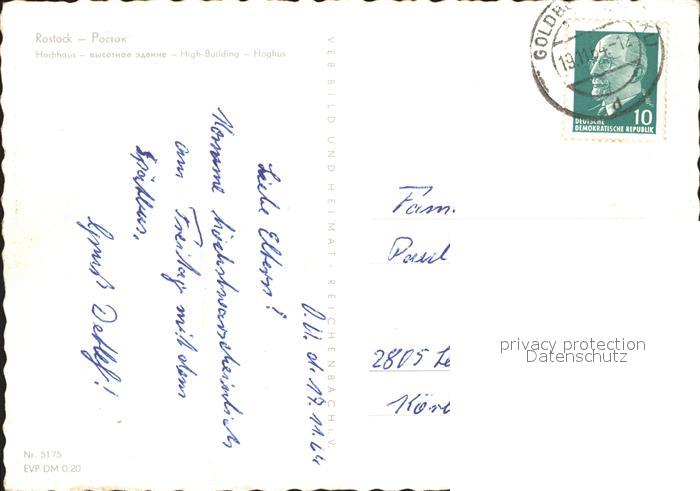 Rostock — Росток
Hochhaus — высотное здание — High-Building — Hoghus
VEB BILD UND HEIMAT · REICHENBACH i.V.
17.11.64
Liebe Eltern!
Komme höchstwarscheinlich
am Freitag mit dem
Spätbus.
Gruß Detlef!
Nr. 5175
EVP DM 0,20
19.11.64
10
DEUTSCHE
DEMOKRATISCHE REPUBLIK
Fam.
Paul
2805
privacy protection
Datenschutz